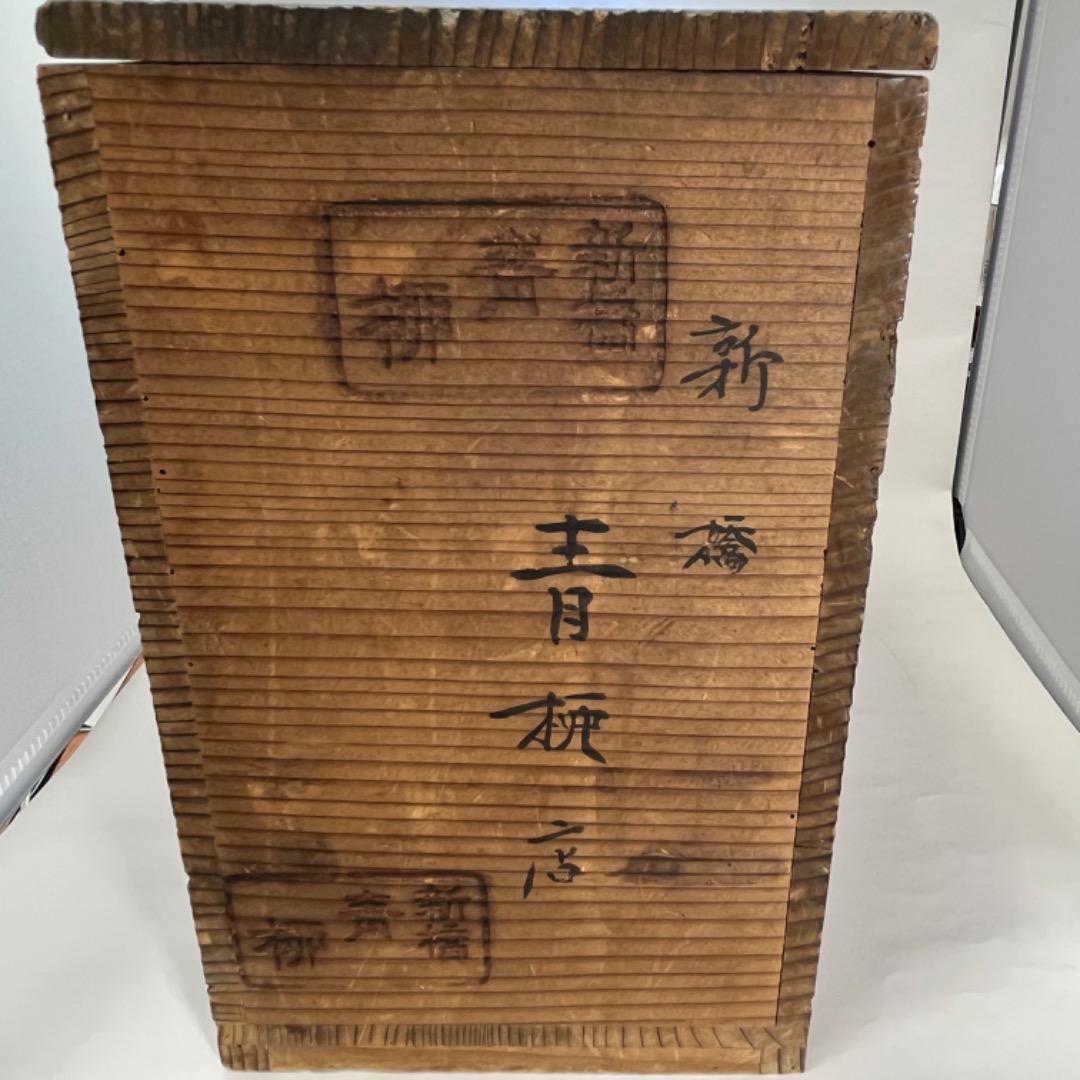 新橋
青柳
新橋
青柳店
新橋
青柳